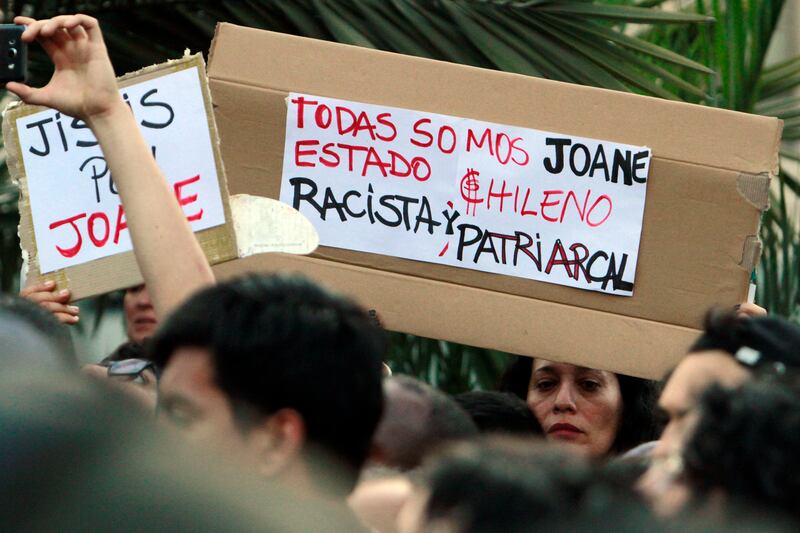 JISTIS
JOANE
TODAS SOMOS JOANE
ESTADO CHILENO
RACISTA Y PATRIARCAL